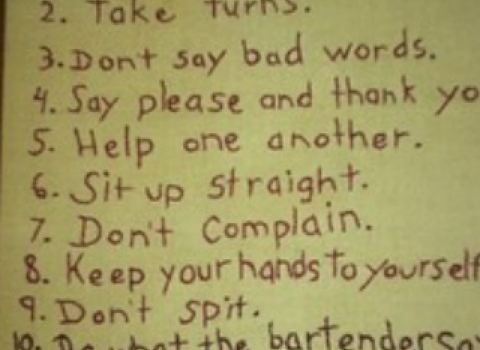 2. Take turns.
3. Don't say bad words.
4. Say please and thank yo
5. Help one another.
6. Sit up straight.
7. Don't Complain.
8. Keep your hands to yourself
9. Don't spit.
10. Do what the bartender sa